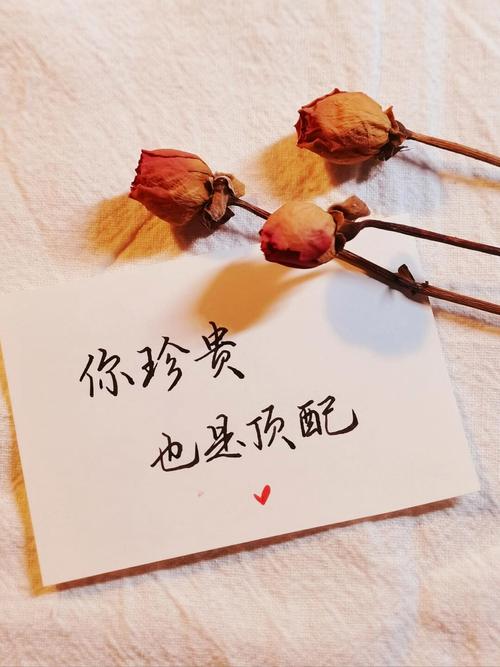 你珍贵
也是顶配